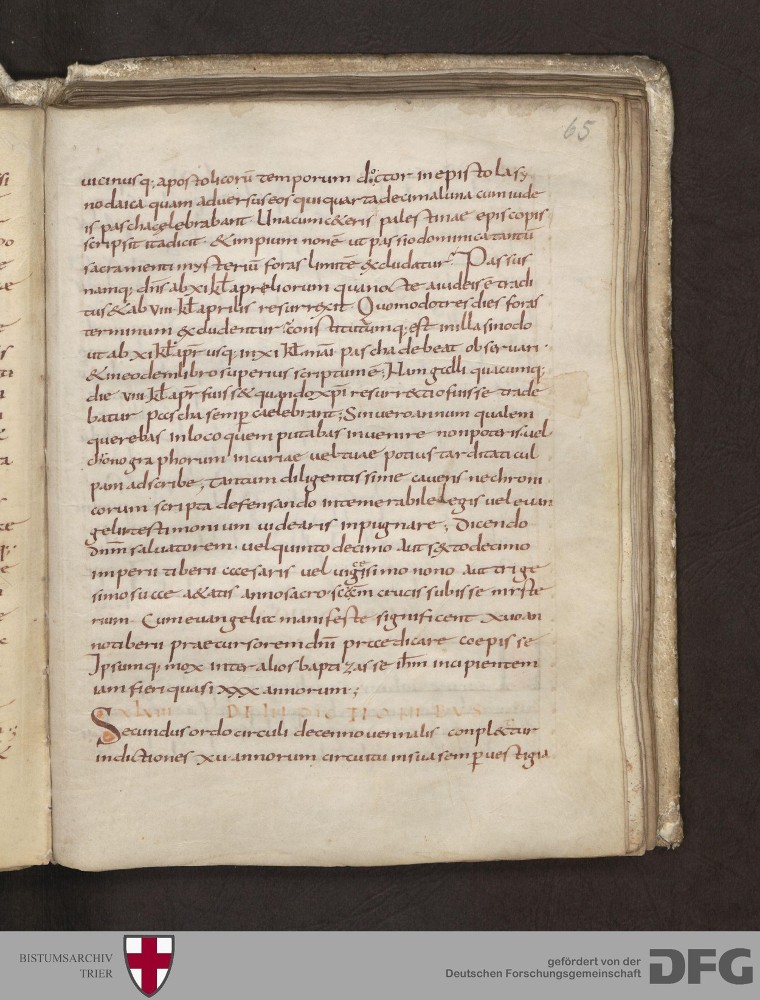 65
uicinusq; apostolicorū temporum doctor in epistola sy
nodaica quam aduersus eos qui quarta decima luna cum iude
is pascha celebrabant Una cum ceteris palestinae episcopis
scripsit ita dicit · & impium non ē ut passio dominica tantū
sacramenti mysteriū foras limitē excludatur Passus
namq; dn̄s ab xi kl̄ apreliorum qua nocte a iudeis ē tradi
tus & ab viii kl̄ aprilis resurrexit Quomodo tres dies foras
terminum excludentur · constitutumq; est in illa sinodo
ut ab xi kl̄ apr̄ usq; in xi kl̄ mai pascha debeat obseruari ·
& in eodem libro superius scriptum ē; Nam galli quacumq;
die viii kl̄ apr̄ fuiss& quando xpī resurrectio fuisse trade
batur pascha semp̄ caelebrant; Sin uero annum qualem
querebas in loco quem putabas inuenire non poteris · uel
chronographorum incuriae uel tuae potius tarditati cul
pam adscribe; tantum diligentissime cauens ne chroni
corum scripta defensando intemerabile legis uel euan
gelii testimonium uidearis inpugnare; Dicendo
dn̄m saluatorem · uel quinto decimo aut sexto decimo
imperii tiberii caesaris uel uigissimo nono aut trige
simo suae aetatis anno sacro scm̄ crucis subisse miste
rium · Cum euangelia manifeste significent xuo an
no tiberii praecursorem dn̄i praedicare coepisse
Ipsumq; mox inter alios baptizasse ih̄m incipientem
iam fieri quasi xxx annorum;
xluiii DE INDICTIONIBUS
Secundus ordo circuli decennouenalis conplectitur
indictiones xu annorum circuitu in sua semp̄ uestigia
BISTUMSARCHIV
TRIER
gefördert von der
Deutschen Forschungsgemeinschaft
DFG